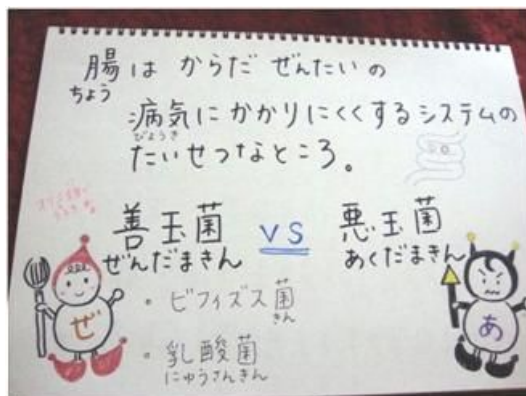 腸は からだ ぜんたいの
ちょう
病気にかかりにくくするシステムの
びょうき
たいせつなところ。
善玉菌 VS 悪玉菌
ぜんだまきん あくだまきん
・ビフィズス菌
きん
・乳酸菌
にゅうさんきん
ぜ
あ